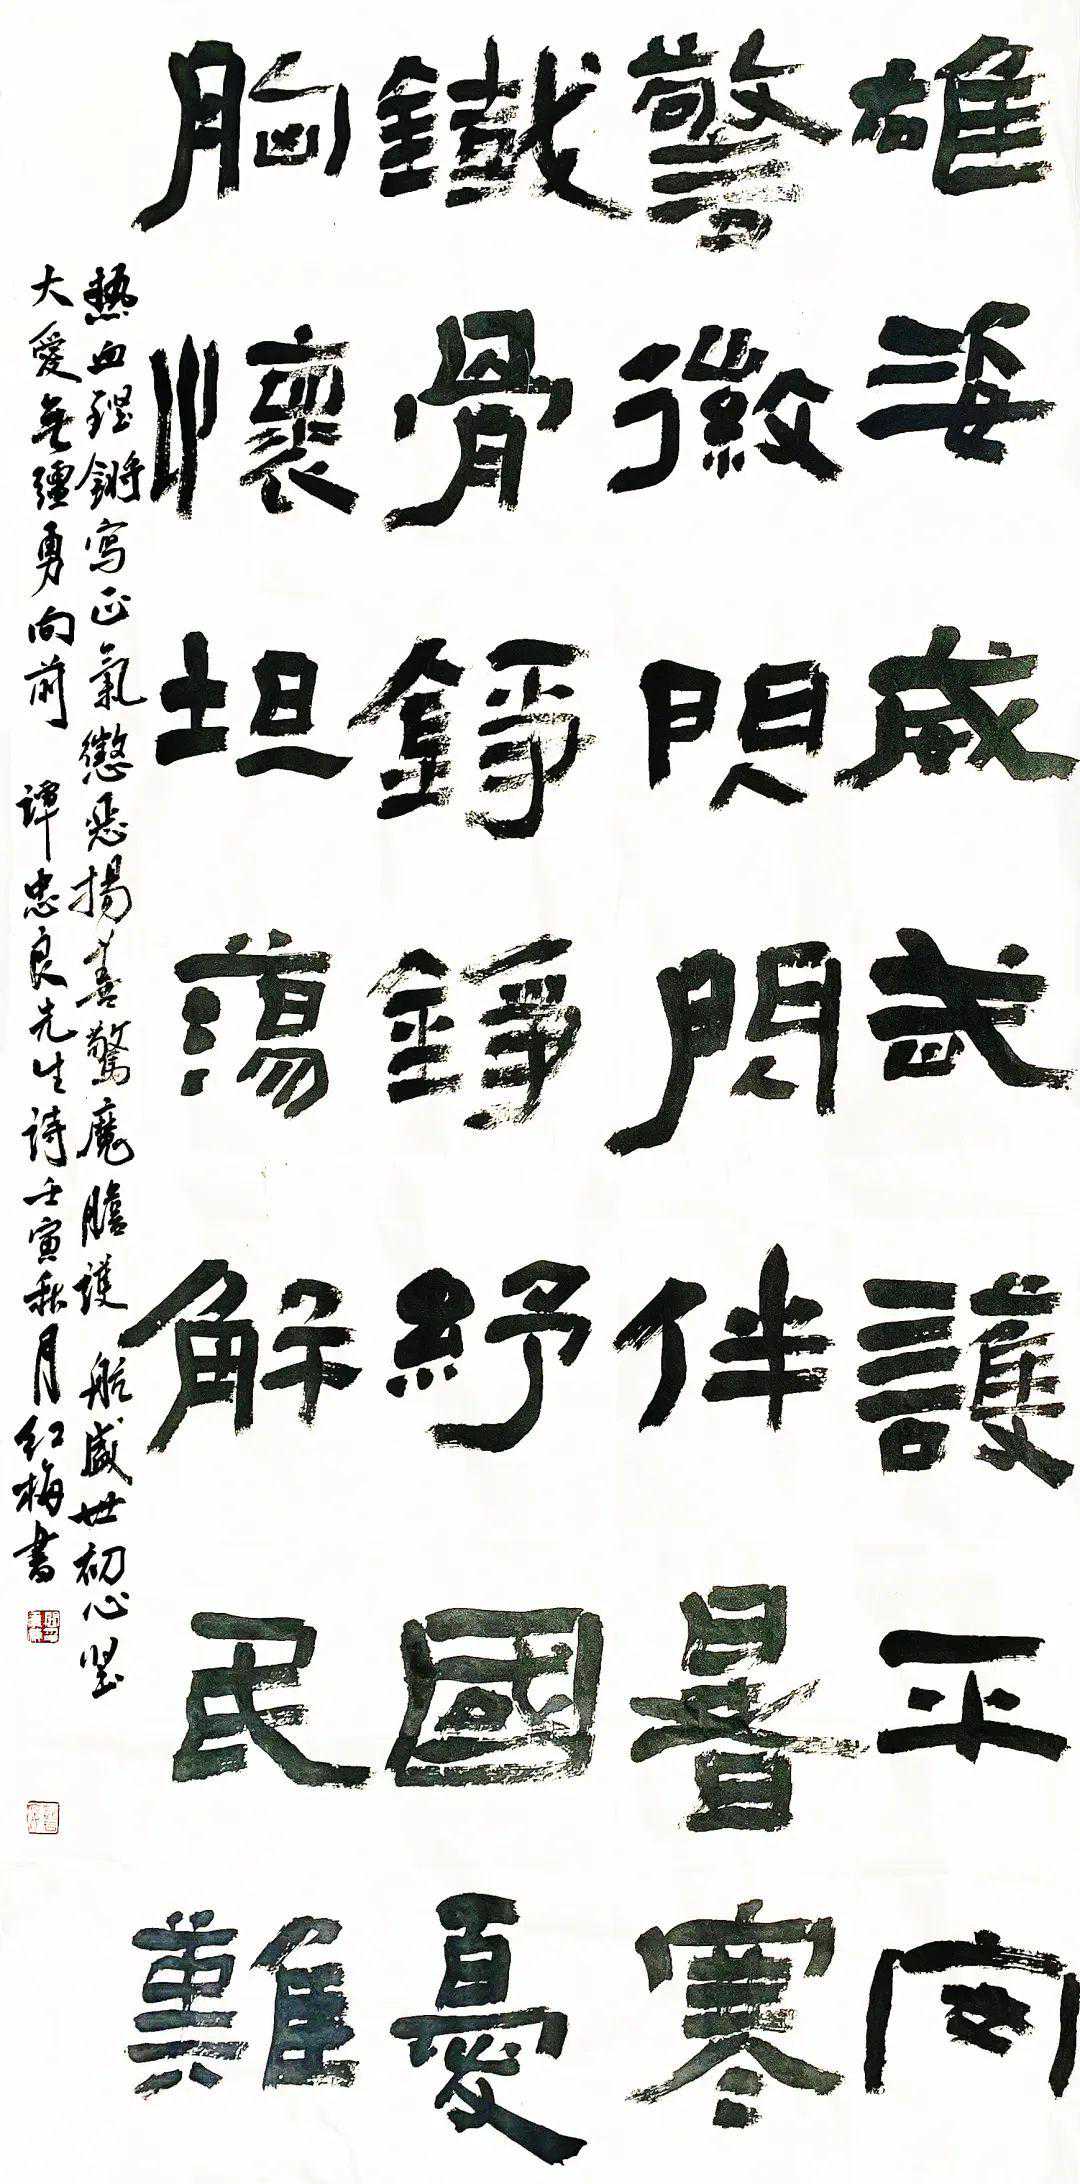 雄姿威武護平安
警徽閃閃伴暑寒
鐵骨錚錚紓國憂
胸懷坦蕩解民難
熱血鏗鏘写正氣懲惡揚善驚魔膽護航盛世初心堅
大愛無疆勇向前 譚忠良先生詩壬寅秋月红梅書